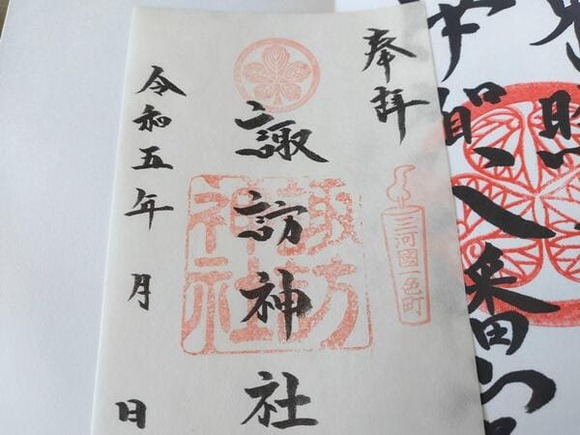 奉拝
三河國一色町
諏訪神社
諏訪神社
令和五年 月 日
伊賀八幡宮